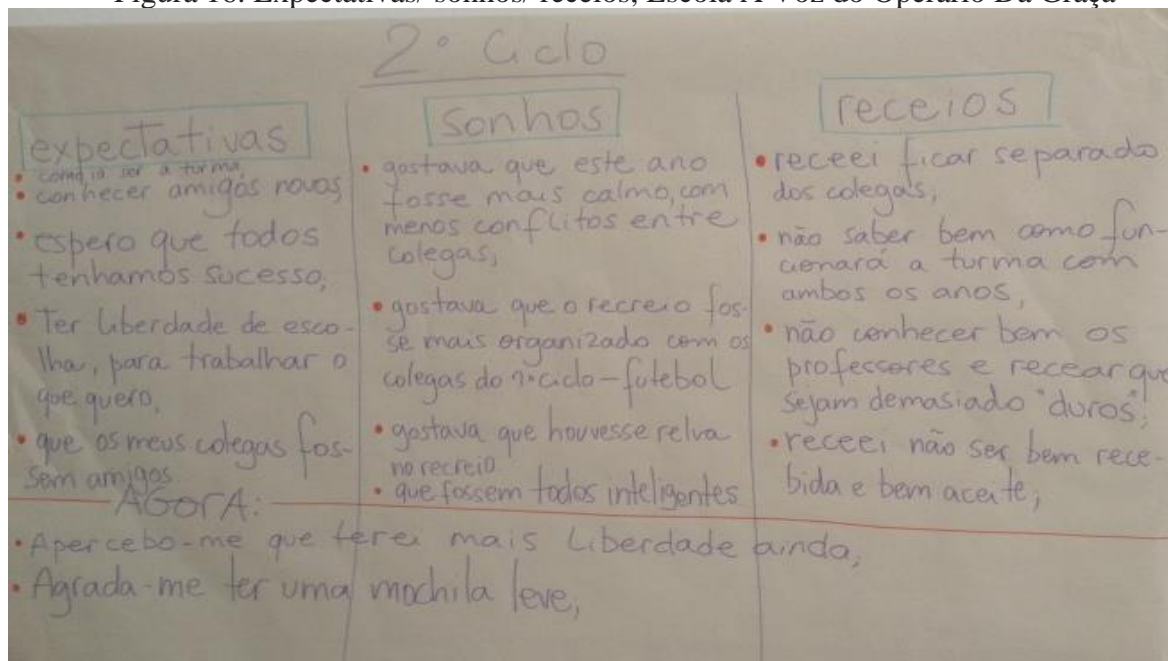 Figura 16: Expectativas/ sonhos/ receios, Escola A Voz do Operário Da Graça
2º Ciclo
expectativas
• como ia ser a turma,
• conhecer amigos novos,
• espero que todos
tenhamos sucesso,
• Ter liberdade de esco-
lha, para trabalhar o
que quero,
• que os meus colegas fos-
sem amigos
sonhos
• gostava que este ano
fosse mais calmo, com
menos conflitos entre
colegas,
• gostava que o recreio fos-
se mais organizado com os
colegas do ciclo - futebol
• gostava que houvesse relva
no recreio
• que fossem todos inteligentes
receios
• receei ficar separado
dos colegas,
• não saber bem como fun-
cionará a turma com
ambos os anos,
• não conhecer bem os
professores e recear que
sejam demasiado "duros";
• receei não ser bem rece-
bida e bem aceite,
AGORA:
• Apercebo-me que terei mais Liberdade ainda,
• Agrada-me ter uma mochila leve,